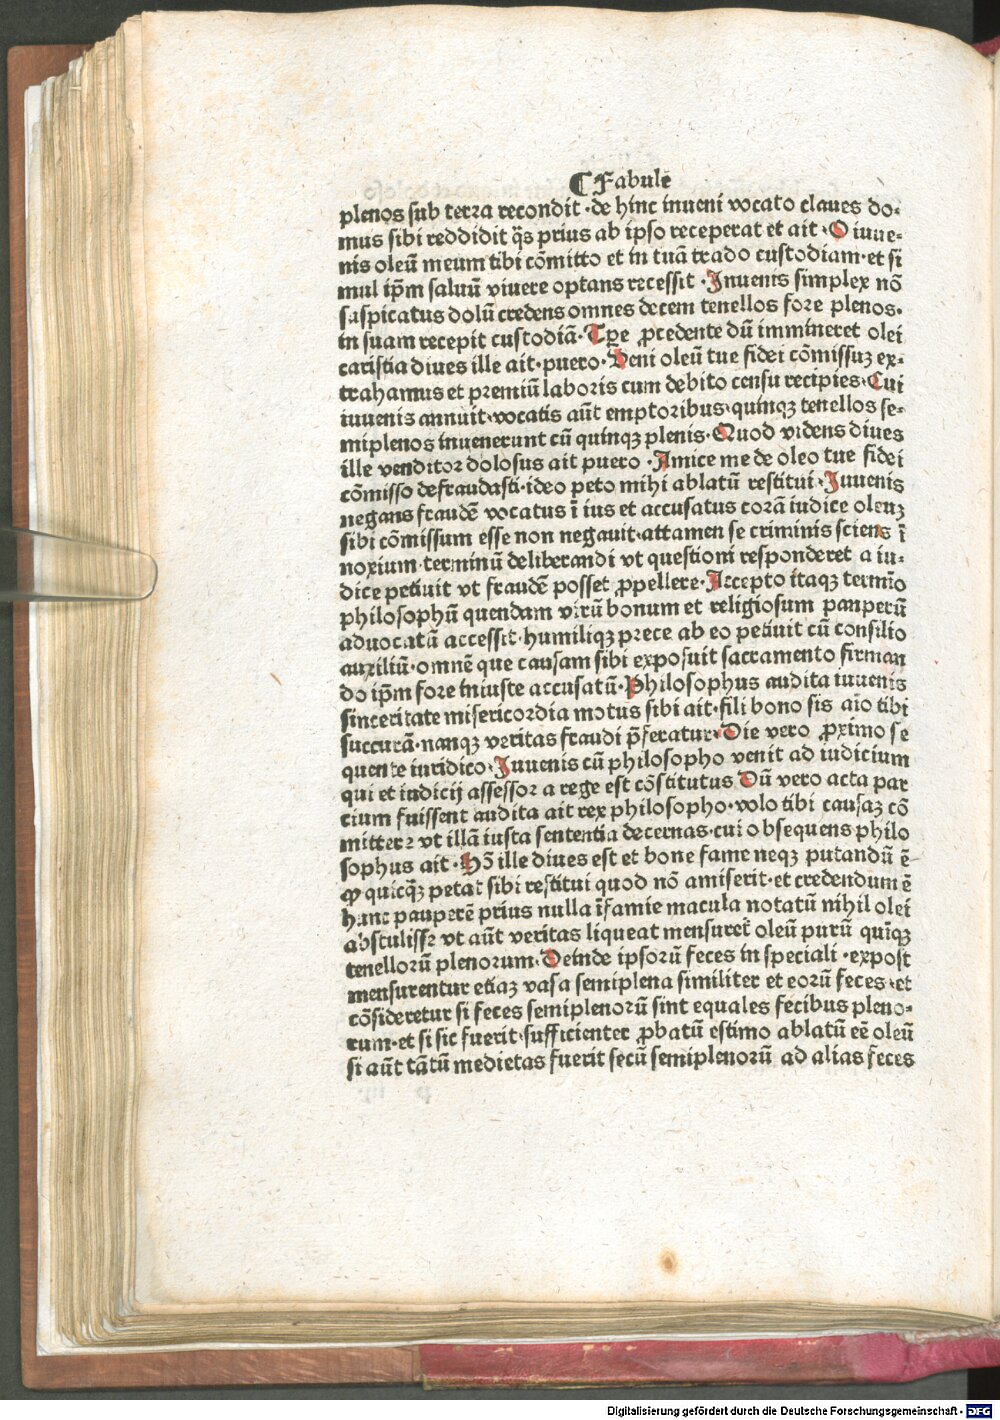 ⸿ Fabule
plenos sub terra recondit·de hinc inueni vocato claues do-
mus sibi reddidit q̄s prius ab ipso receperat et ait·O iuue-
nis oleū meum tibi cōmitto et in tuā trado custodiam·et si
mul ip̄m saluū viuere optans recessit·Iuuenis simplex nō
suspicatus dolū credens omnes decem tenellos fore plenos·
in suam recepit custodiā·Tꝑe ꝓcedente dū immineret olei
caristia diues ille ait·puero·Veni oleū tue fidei cōmissuꝫ ex-
trahamus et premiū laboris cum debito censu recipies·Cui
iuuenis annuit·vocatis aūt emptoribus·quinqꝫ tenellos se-
miplenos inuenerunt cū quinqꝫ plenis·Quod videns diues
ille venditor dolosus ait puero·Amice me de oleo tue fidei
cōmisso defraudasti·ideo peto mihi ablatū restitui·Iuuenis
negans fraudē vocatus ī ius et accusatus corā iudice oleuꝫ
sibi cōmissum esse non negauit·attamen se criminis sciens ī
noxium·terminū deliberandi vt questioni responderet a iu-
dice petiuit vt fraudē posset ꝓpellere·Accepto itaqꝫ termīo
philosophū quendam virū bonum et religiosum pauperū
aduocatū accessit·humiliqꝫ prece ab eo petiuit cū consilio
auxiliū·omnē que causam sibi exposuit sacramento firman
do ip̄m fore iniuste accusatū·Philosophus audita iuuenis
sinceritate misericordia motus sibi ait·fili bono sis aīo tibi
succurā·nanqꝫ veritas fraudi p̄feratur·Die vero ꝓximo se
quente iuridico·Iuuenis cū philosopho venit ad iudicium
qui et iudicij assessor a rege est cōstitutus Dū vero acta par
cium fuissent audita ait rex philosopho·volo tibi causaꝫ cō
mittere vt illā iusta sententia decernas·cui obsequens philo
sophus ait·Hō ille diues est et bone fame neqꝫ putandū ē
ꝙ quicq̄ꝫ petat sibi restitui quod nō amiserit·et credendum ē
hunc pauperē prius nulla īfamie macula notatū nihil olei
abstulisse vt aūt veritas liqueat mensuret̄ oleū purū quīqꝫ
tenellorū plenorum·Deinde ipsorū feces in speciali·expost
mensurentur etiaꝫ vasa semiplena similiter et eorū feces·et
cōsideretur si feces semiplenorū sint equales fecibus pleno-
rum·et si sic fuerit·sufficienter ꝓbatū estimo ablatū eē oleū
si aūt tātū medietas fuerit fecū semiplenorū ad alias feces
Digitalisierung gefördert durch die Deutsche Forschungsgemeinschaft - DFG